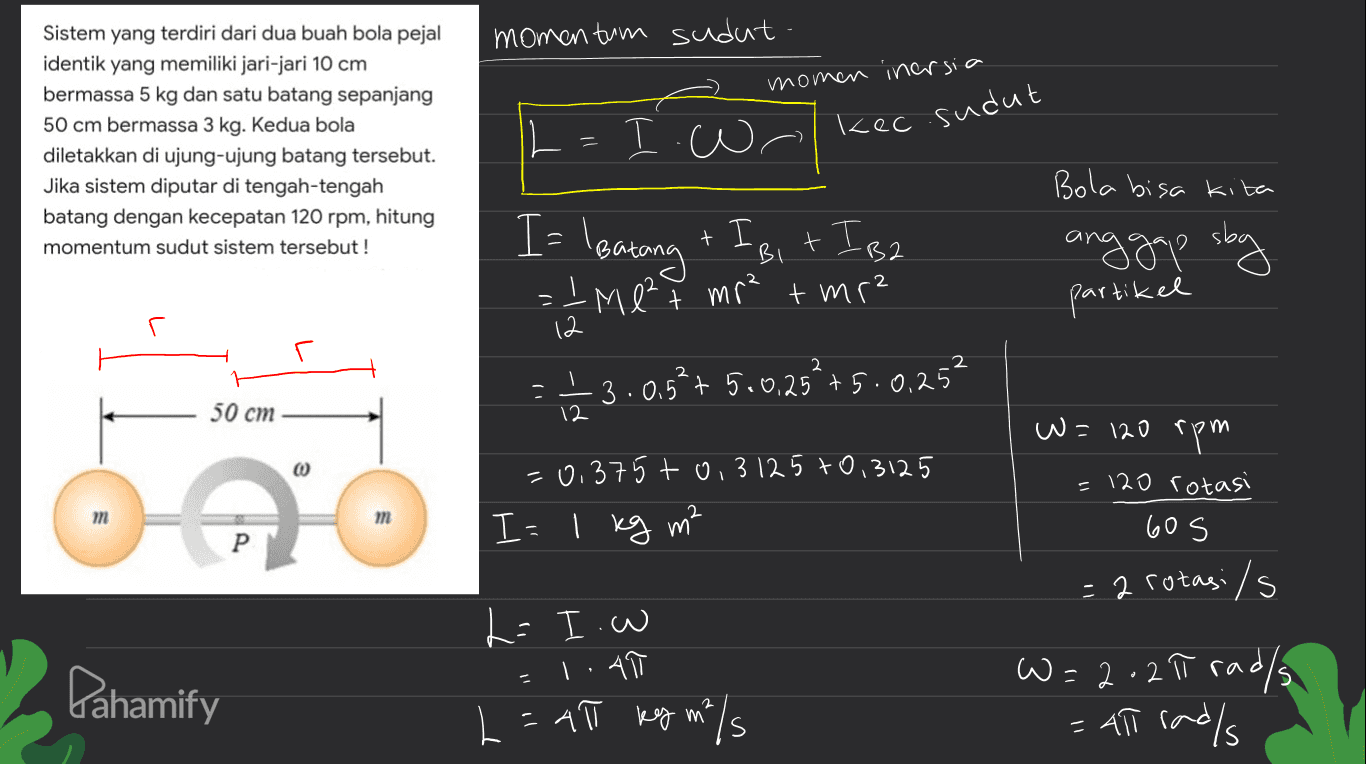 Sistem yang terdiri dari dua buah bola pejal
identik yang memiliki jari-jari 10 cm
bermassa 5 kg dan satu batang sepanjang
50 cm bermassa 3 kg. Kedua bola
diletakkan di ujung-ujung batang tersebut.
Jika sistem diputar di tengah-tengah
batang dengan kecepatan 120 rpm, hitung
momentum sudut sistem tersebut !
r
r
50 cm
ω
m
m
P
momentum sudut.
momen inersia
L = I . ω
kec. sudut
I = I Batang + I B1 + I B2
= 1/12 Ml² + mr² + mr²
= 1/12 3 . 0,5² + 5 . 0,25² + 5 . 0,25²
= 0,375 + 0,3125 + 0,3125
I = 1 kg m²
L = I . ω
= 1 . 4π
L = 4π kg m²/s
Bola bisa kita
anggap sbg
partikel
ω = 120 rpm
= 120 rotasi
60 s
= 2 rotasi/s
ω = 2 . 2π rad/s
= 4π rad/s
Pahamify